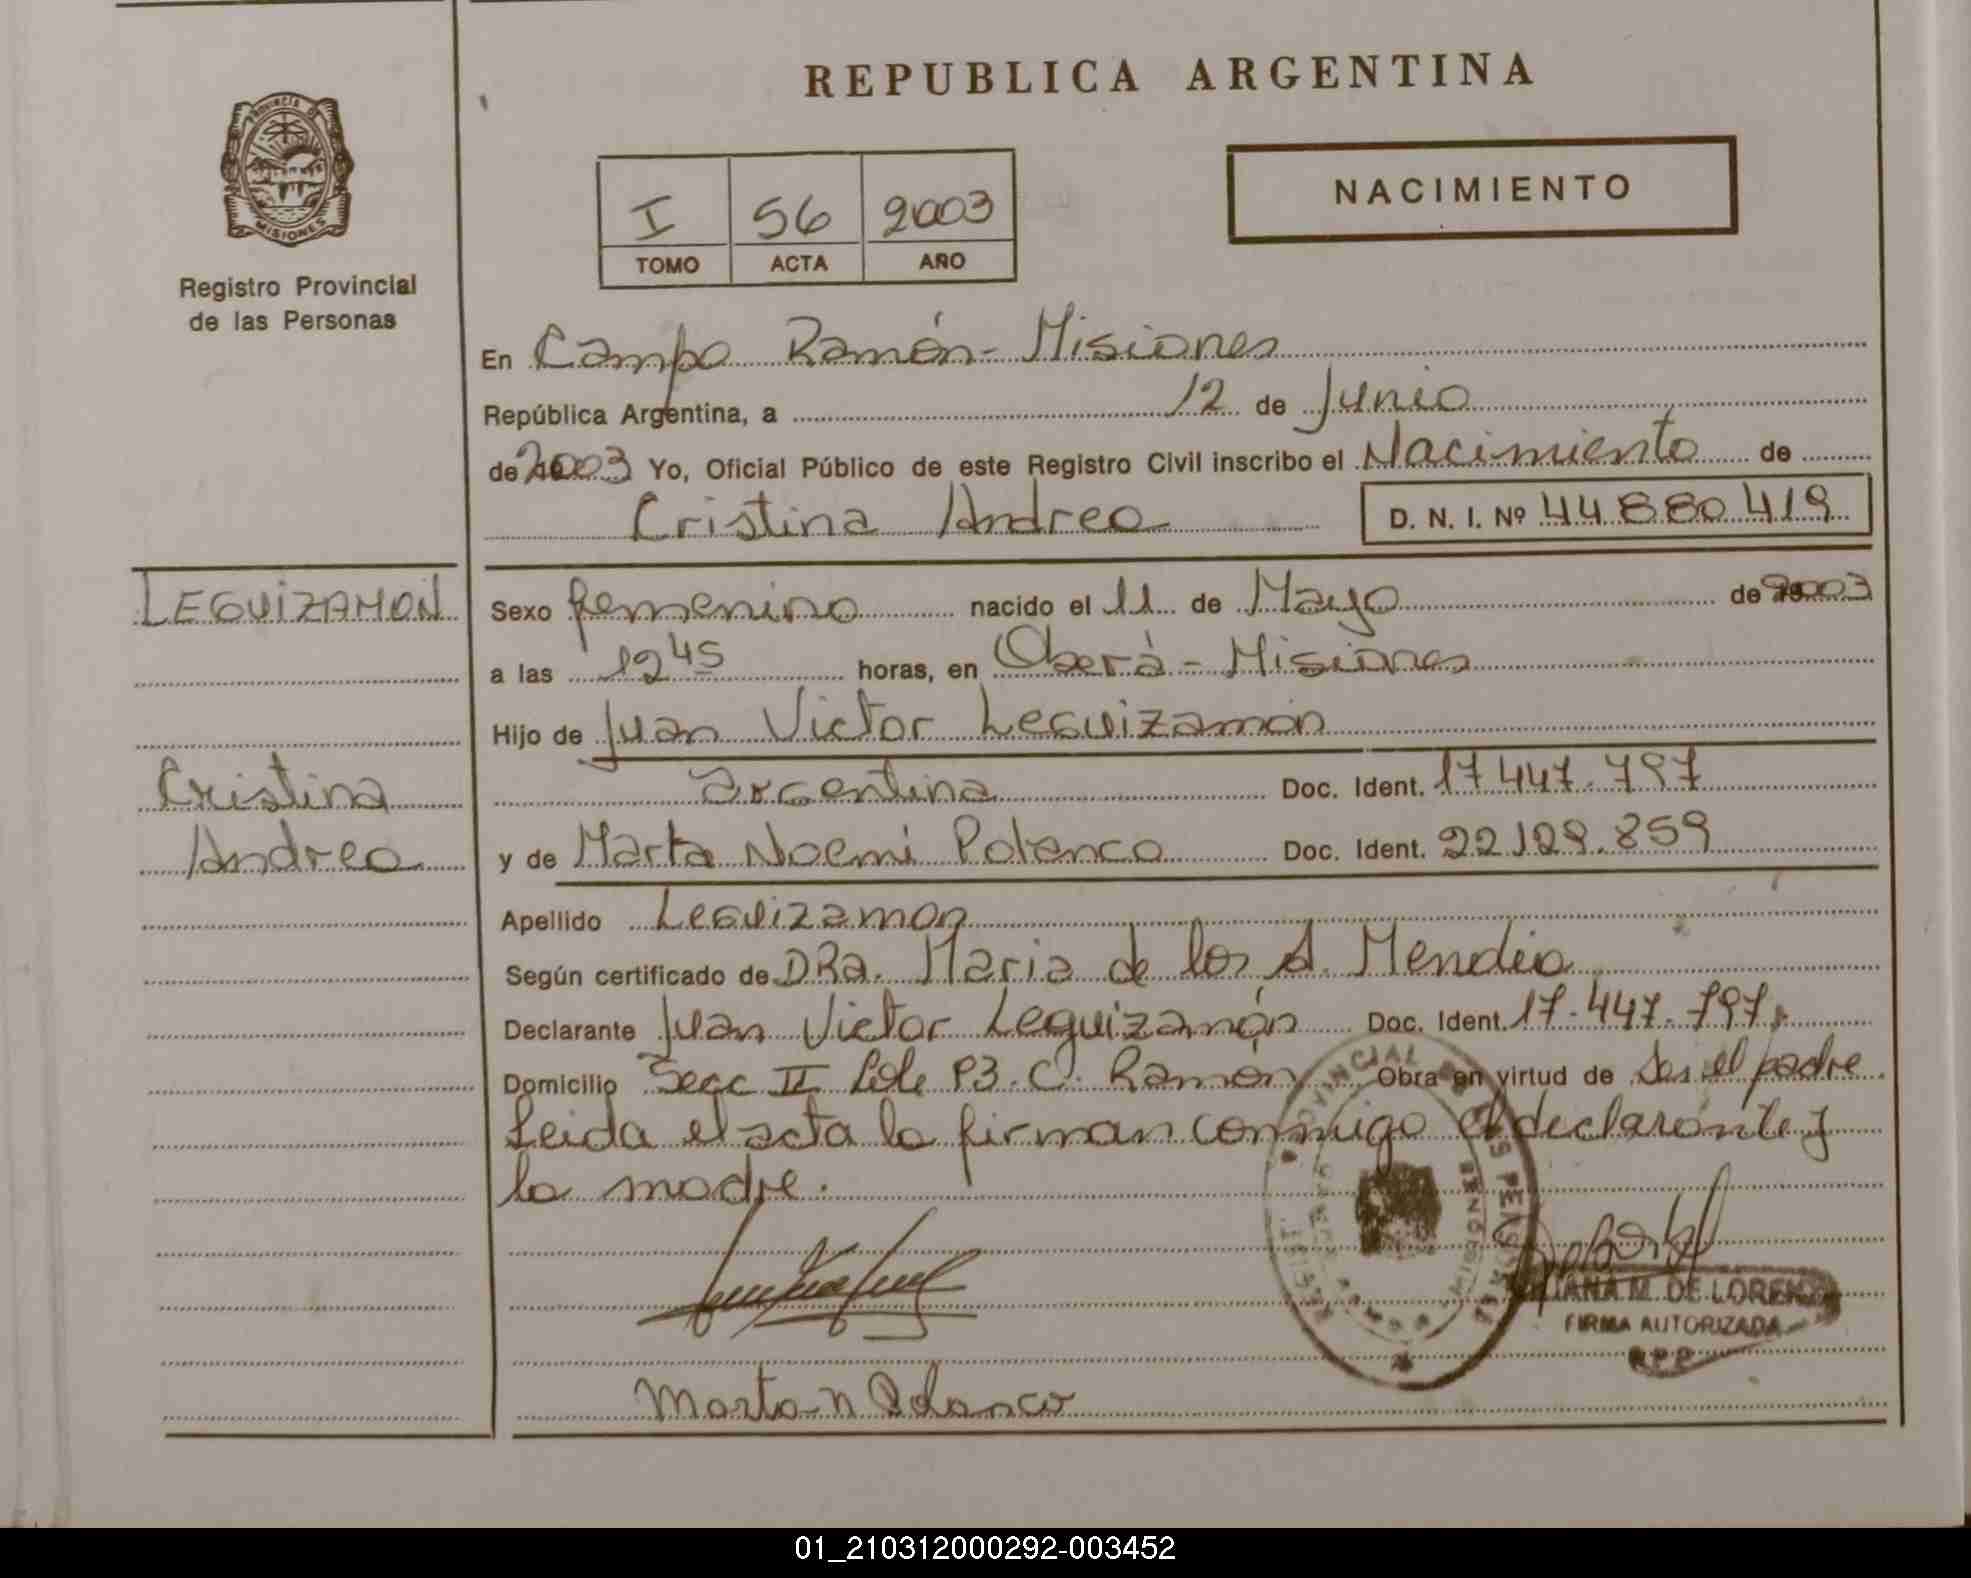 REPUBLICA ARGENTINA
PROVINCIA DE
MISIONES
Registro Provincial
de las Personas
I 56 2003
TOMO ACTA AÑO
NACIMIENTO
En Campo Ramón - Misiones
República Argentina, a 12 de Junio
de 2003 Yo, Oficial Público de este Registro Civil inscribo el Nacimiento de
Cristina Andrea D. N. I. Nº 44 880 419
LEGUIZAMON
Sexo femenino nacido el 11 de Mayo de 2003
a las 12 45 horas, en Oberá - Misiones
Hijo de Juan Victor Leguizamón
Cristina
argentina Doc. Ident. 17 447.797
Andrea
y de Marta Noemi Polenco Doc. Ident. 22 129.859
Apellido Leguizamon
Según certificado de DRa. Maria de los A. Mendia
Declarante Juan Victor Leguizamón Doc. Ident. 17.447.797
Domicilio Secc II Lote 83. C. Ramón Obra en virtud de Ser el padre
Leida el acta la firman conmigo el declarante y
la madre.
M. DE LOREN
FIRMA AUTORIZADA
R.P.P.
Marta N Polanco
01_210312000292-003452